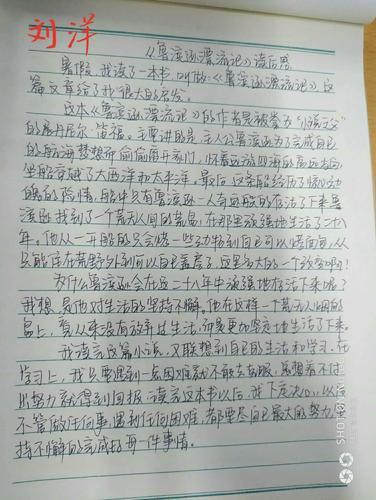 刘洋
《鲁滨逊漂流记》读后感
暑假,我读了一本书,叫做《鲁滨逊漂流记》这
篇文章给了我很大的启发。
这本《鲁滨逊漂流记》的作者是被拳为“小说之父”
的丹尼尔·笛福。主要讲的是主人公鲁滨逊为了完成自己
的航海梦想而偷偷离开家门,怀着远游四海的高远志向
坐船穿越了大西洋和太平洋。最后这条船经历了惊心动
魄的险情,船中只有鲁滨逊一人奇迹般的存活了下来鲁
滨逊找到了一个荒无人烟的荒岛,在那里顽强地生活了二十八
年。他从一开始的只会烤一些动物到自己可以烤面包,从
只能住在荒野外到可以自己盖房子,这是多大的一个改变啊!
为什么鲁滨逊会在这二十八年中顽强地存活下来呢?
我想是他对生活的坚持不懈。他在这样一个荒无人烟的
岛上,看从来没有放弃过生活,而是更加坚定地生活了下来。
我读完这篇小说,又联想到自己的生活和学习,在
学习上,我只要遇到一点困难就不敢去克服,总想着不付
出努力就得到回报,读完这本书以后,我下定决心,以后
不管做任何事,遇到任何困难,都要尽自己最大的努力,坚
持不懈的完成好每一件事情。
SHOT ON